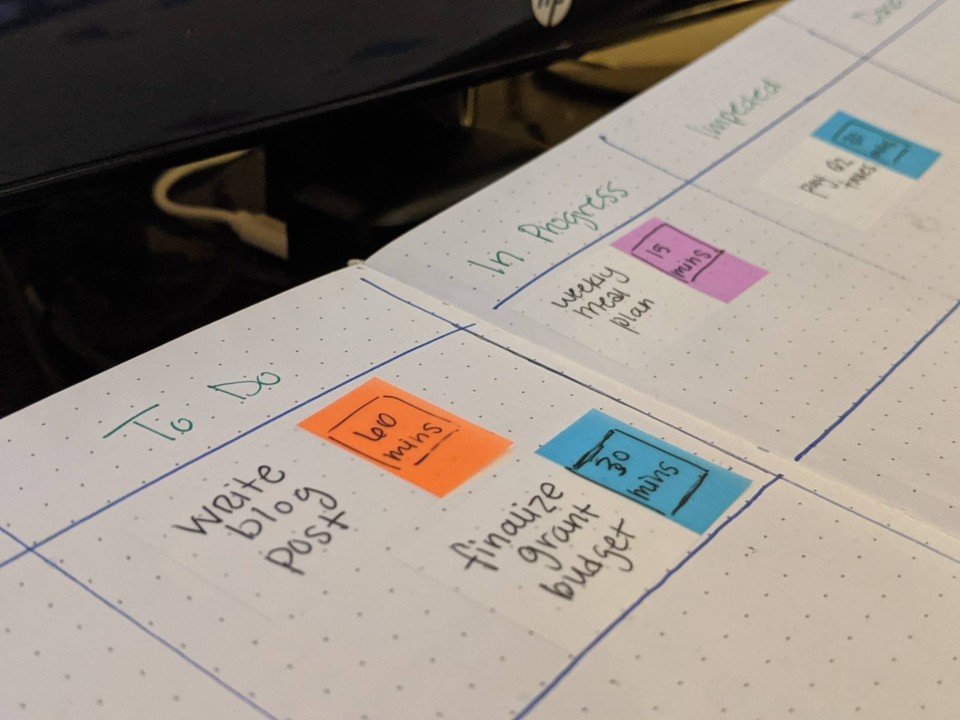 To Do
60
mins
write
blog
post
30
mins
finalize
grant
budget
In Progress
15
mins
weekly
meal
plan
Impeded
30
mins
pay Q2
taxes
Done
hp